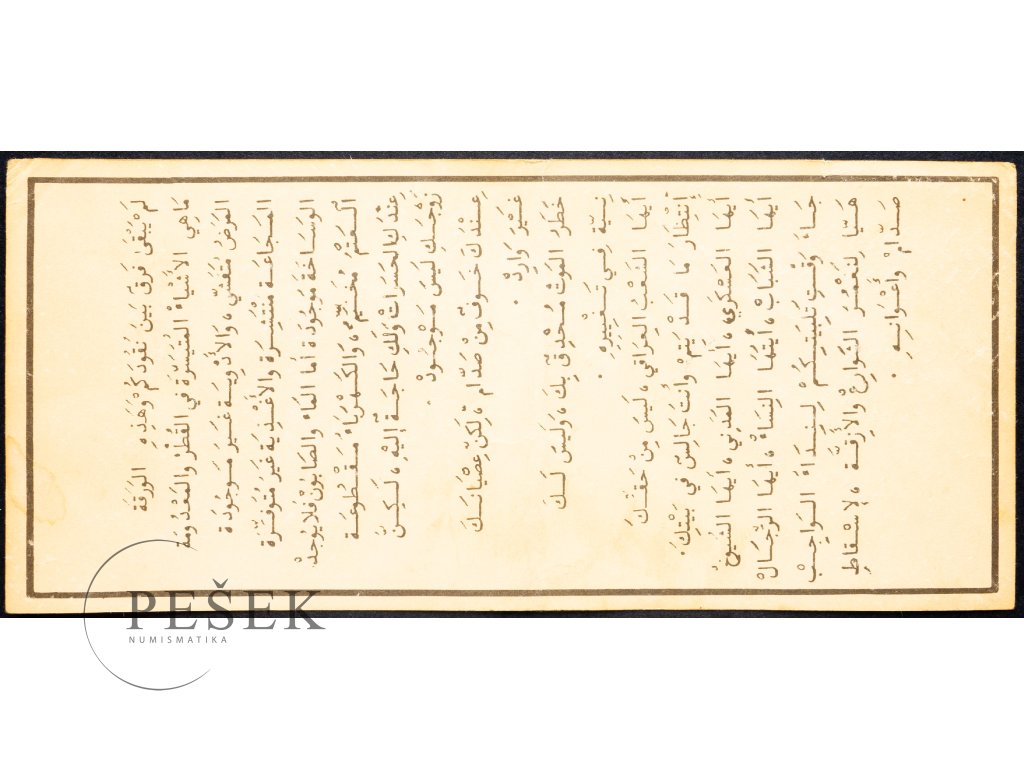 لَمْ يَبْقَى فَرَق بَيْنَ نُقُودِكُمْ وَهَذِهِ الوَرَقَة
مَاهِي الأَشْيَاءُ المُتَيَسِّرَة في القُطْر والمَعْدُومَة
المَرَضُ مُتَفَشِّي، وَالأَدْوِيَة غَيْر مَوجُودَة
المَجَاعَة مُنْتَشِرَة والأَغْذِيَة غَيَر مُتَوفِّرَة
الوَسَاخَة مَوجُودَة أما المَاء والصَابُونْ فَلا يوُجَدْ
العَتَم مُخَيِّم، وَالكَهْرَبَاء مَقْطُوعَة
عَنْدَكِ الحَسَرَاتْ وَلَك حَاجَة إليْهِ، لَكِنَّ
زَوْجَكِ لَيسَ مَوْجُودْ.
عِنْدَكَ خَوفٌ مِنْ صَدَّام، لَكِنّ عِصْيَانَكَ
غَيْرَ وَارِدْ.
خَطَرُ المَوت مُحْدِقٌ بِكَ، وَلَيسَ لَكَ
نِيَّة فِي تَغْييرِهِ.
أَيهَا الشَعْب العِراقي، لَيسَ مِنْ حَقِّكَ
إنْتِظَارَ مَا قَدْ يَتِمْ وأنت جَالِسٌ في بَيْتِكَ.
أيهَا العَسْكَري، أيهَا المَدَنِي، أيهَا الشيُوخْ
أيهَا الشَبَابْ، أيتُهَا النِسَاءْ، أيهَا الرِّجَالْ
جَاءَ وَقْت تَلبِيَتِكُمْ لِنِدَاءِ الوَاجِبْ
هَيَّا لِنَغْمُر الشَوَارِعْ والأَزِقَّة، لإِسْقَاطِ
صَدّامْ وأَعْوَانِهِ.
PEŠEK
NUMISMATIKA